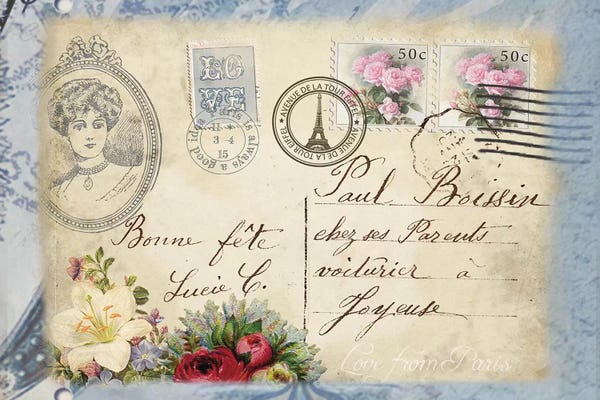 LOVE
50c
50c
Paris is always a good idea
3-4
15
AVENUE DE LA TOUR EIFFEL
AVENUE DE LA TOUR EIFFEL
Paul Boissin
chez ses Parents
voiturier à
Joyeuse
Bonne fête
Lucie C.
Love from Paris